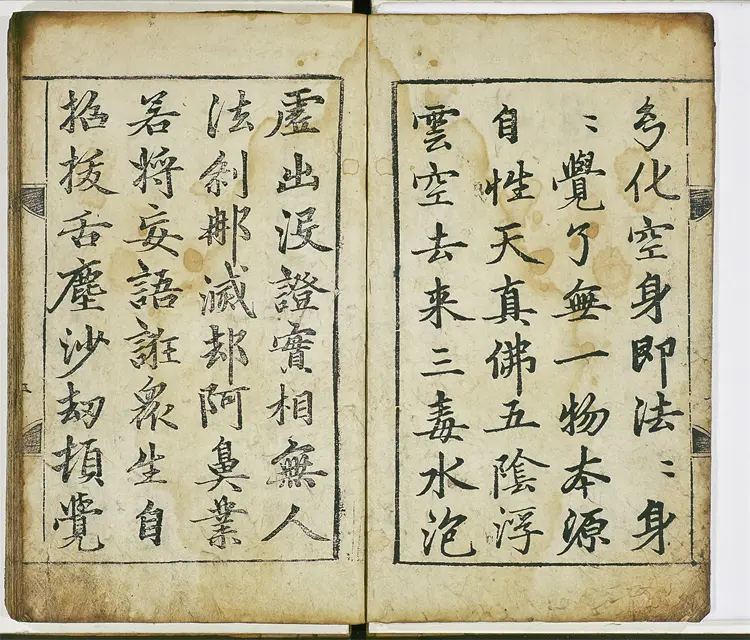 幻化空身即法〻身
〻覺了無一物本源
自性天真佛五陰浮
雲空去来三毒水泡
虛出沒證實相無人
法刹那滅却阿鼻業
若将妄語誑衆生自
招拔舌塵沙劫頓覺